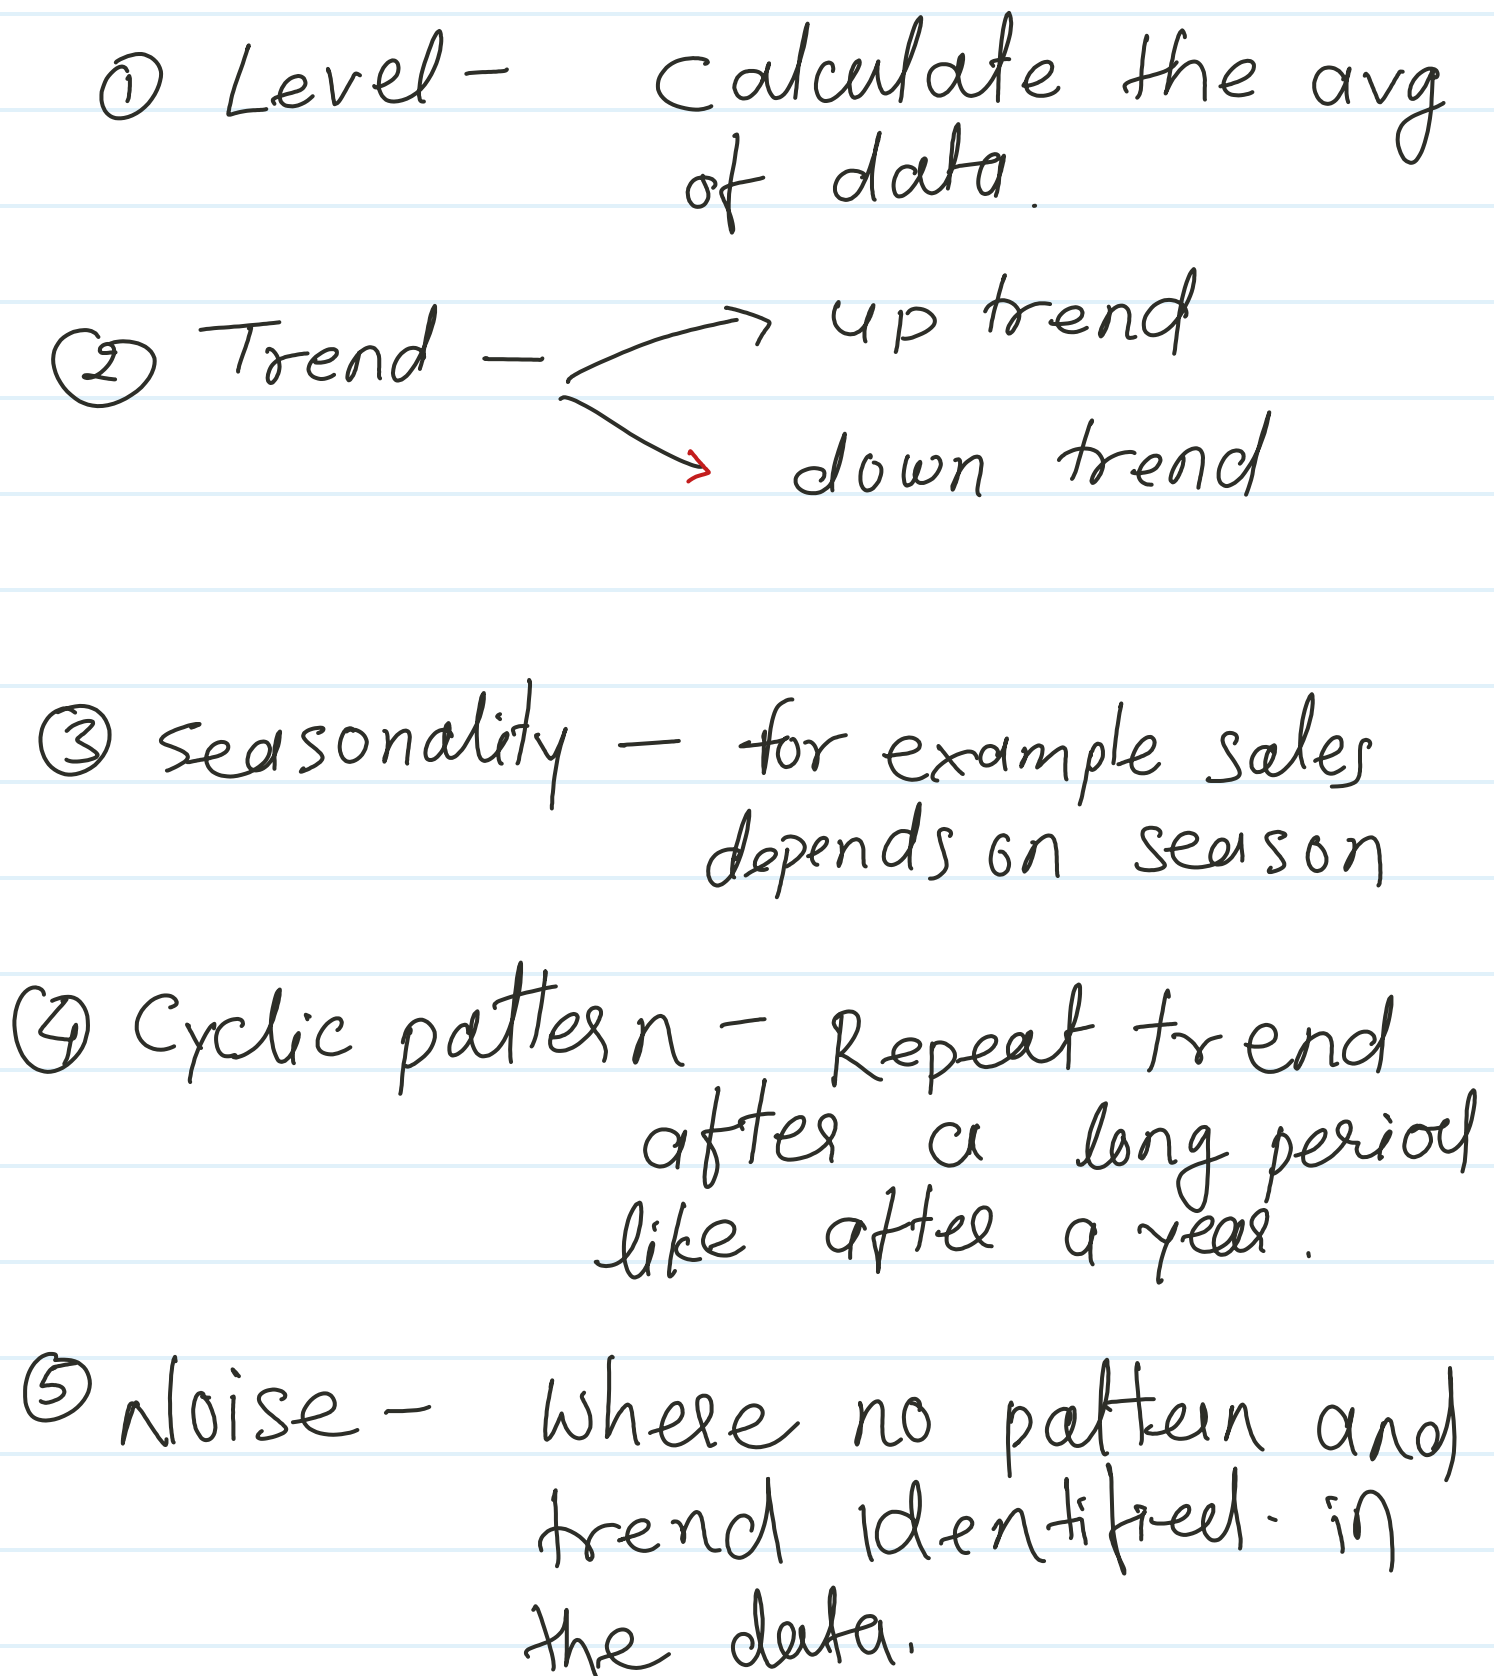 ① Level - Calculate the avg
of data.
② Trend - → up trend
→ down trend
③ Seasonality - for example sales
depends on season
④ Cyclic pattern - Repeat trend
after a long period
like after a year.
⑤ Noise - Where no pattern and
trend identified. in
the data.